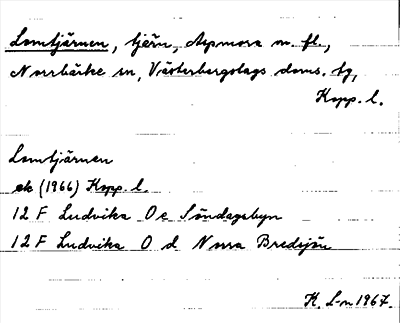 Lomtjärnen, tjärn, Aspmora m. fl.,
Norrbärke sn, Västerbergslags doms. tg,
Kopp. l.
Lomtjärnen
ek (1966) Kopp. l.
12 F Ludvika 0 c Söndagsbyn
12 F Ludvika 0 d Norra Bredsjön
K. L-n 1967.